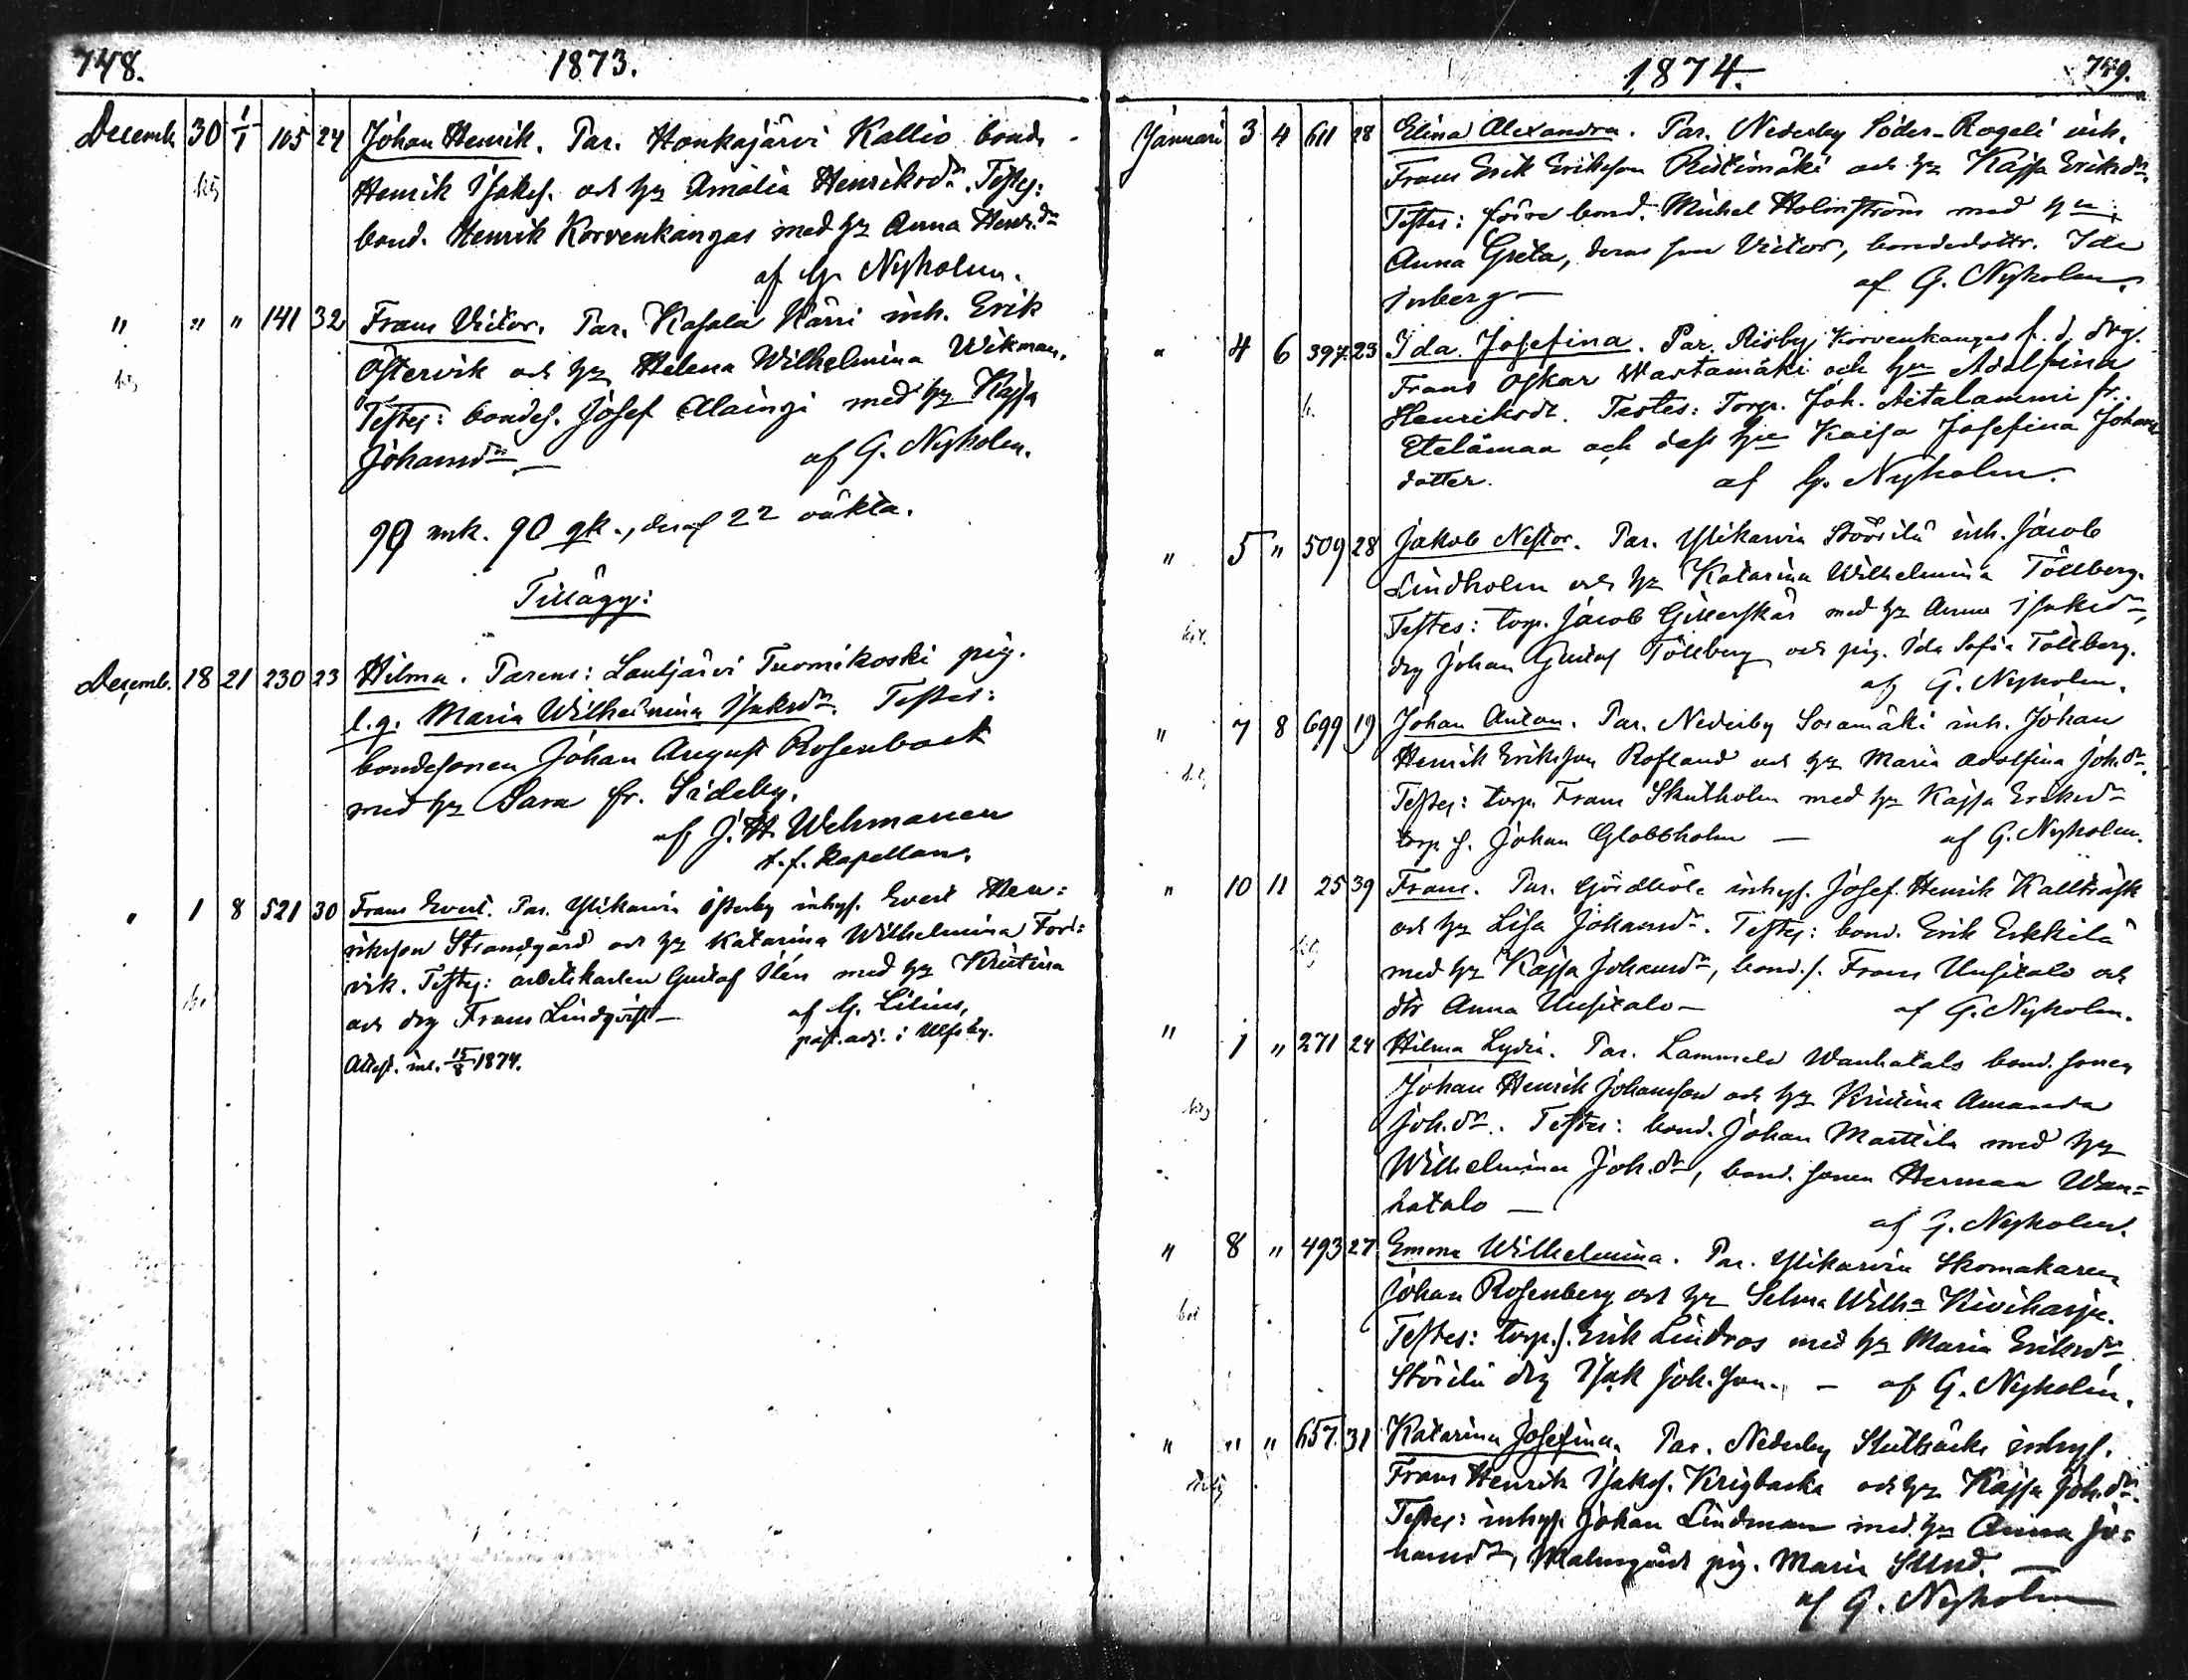 748. 1873.
Decemb. 30 1/1 105 24 Johan Henrik. Par. Honkajärvi Kallio bond.
Henrik Isaks. och h:u Amalia Henriksdr. Testes:
bond. Henrik Korvenkangas med h:u Anna Henr.dr
af G. Nyholm.
" " " 141 32 Frans Victor. Par. Kasala Kärri inh. Erik
Östervik och h:u Helena Wilhelmina Wikman.
Testes: bondes. Josef Alaingi med h:u Kajsa
Johansdr — af G. Nyholm.
99 mk. 90 pk., deraf 22 oäkta.
Tillägg:
Decemb. 18 21 230 23 Hilma. Parens: Lautjärvi Tuomikoski pig.
l.q. Maria Wilhelmina Isaksdr. Testes:
bondesonen Johan August Rosenback
med h:u Sara fr. Sideby.
af J. H. Wehmanen
t. f. Kapellan.
" 1 8 521 30 Frans Evert. Par. Ylikarvia Österby inhys. Evert Hen=
riksson Strandgård och h:u Katarina Wilhelmina Fors=
vik. Testes: arbetskarlen Gustaf Ilén med h:u Kristina
och drg Frans Lindqvist — af G. Lilius,
past. adj. i Ulfsby.
Attest. inl. 15/8 1874.
1874. 749.
Januari 3 4 611 28 Elina Alexandra. Par. Nederby Söder-Rogeli inh.
Frans Erik Eriksson Ristimäki och h:u Kajsa Eriksdr.
Testes: förre bond. Mickel Holmström med h:u
Anna Greta, deras son Victor, bondedottr. Ida
Inberg — af G. Nyholm.
" 4 6 397 23 Ida Josefina. Par. Riisby Korvenkangas f. d. drg.
Frans Oskar Wartamäki och h:u Adolfina
Henriksdr. Testes: Torp. Joh. Aitalammi fr.
Etelämaa och dess h:u Kaisa Josefina Johans
dotter. af G. Nyholm.
" 5 " 509 28 Jakob Nestor. Par. Ylikarvia Stöörilä inh. Jacob
Lindholm och h:u Katarina Wilhelmina Töllberg.
Testes: torp. Jacob Gillerskär med h:u Anna Isaksdr,
drg Johan Gustaf Töllberg och pig. Ida Sofia Töllberg.
af G. Nyholm.
" 7 8 699 19 Johan Anton. Par. Nederby Soramäki inh. Johan
Henrik Eriksson Rosland och h:u Maria Adolfina Joh.dr.
Testes: torp. Frans Skutholm med h:u Kajsa Eriksdr
torp. s. Johan Globbholm — af G. Nyholm.
" 10 11 25 39 Frans. Par. inhys. Josef Henrik Kallträsk
och h:u Lisa Johansdr. Testes: bond. Erik Erkkilä
med h:u Kajsa Johansdr, bond. s. Frans Uusitalo och
dtr Anna Uusitalo — af G. Nyholm.
" 1 " 271 24 Hilma Lydia. Par. Lammela Wanhatalo bond. sonen
Johan Henrik Johansson och h:u Kristina Amanda
Joh.dr. Testes: bond. Johan Marttila med h:u
Wilhelmina Joh.dr, bond. sonen Herman Wan=
hatalo — af G. Nyholm.
" 8 " 493 27 Emma Wilhelmina. Par. Ylikarvia Skomakaren
Johan Rosenberg och h:u Selma Wilh:a Kiviharju.
Testes: torp. s. Erik Lindroos med h:u Maria Eriksdr,
Störilä drg Isak Joh.son. — af G. Nyholm.
" " " 657 31 Katarina Josefina. Par. Nederby Skutbäck inhys.
Frans Henrik Isaks. Krigbacka och h:u Kajsa Joh.dr.
Testes: inhys. Johan Lindman med h:u Anna Jo=
hansdr, Malmgård pig. Maria Sund. —
af G. Nyholm